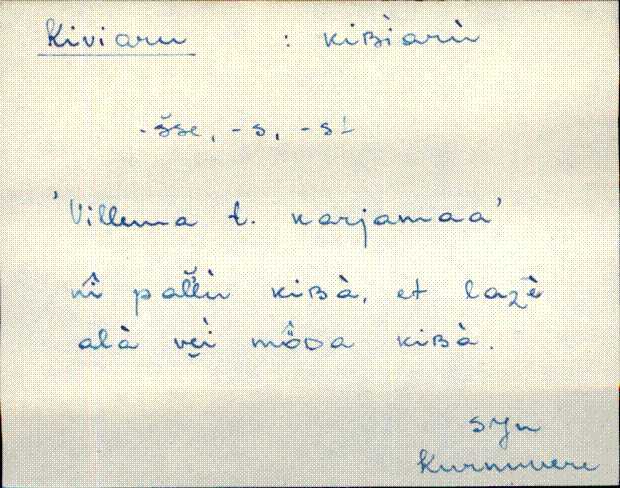 Kiviaru : kiʙ̀iarù
-s̆se, -s, -st
'Villema t. karjamaa'
nî pal̆lù kiʙà, et lazè
alà vei̯ mö̂ᴅa kiʙà.
SJn
Kurnuvere